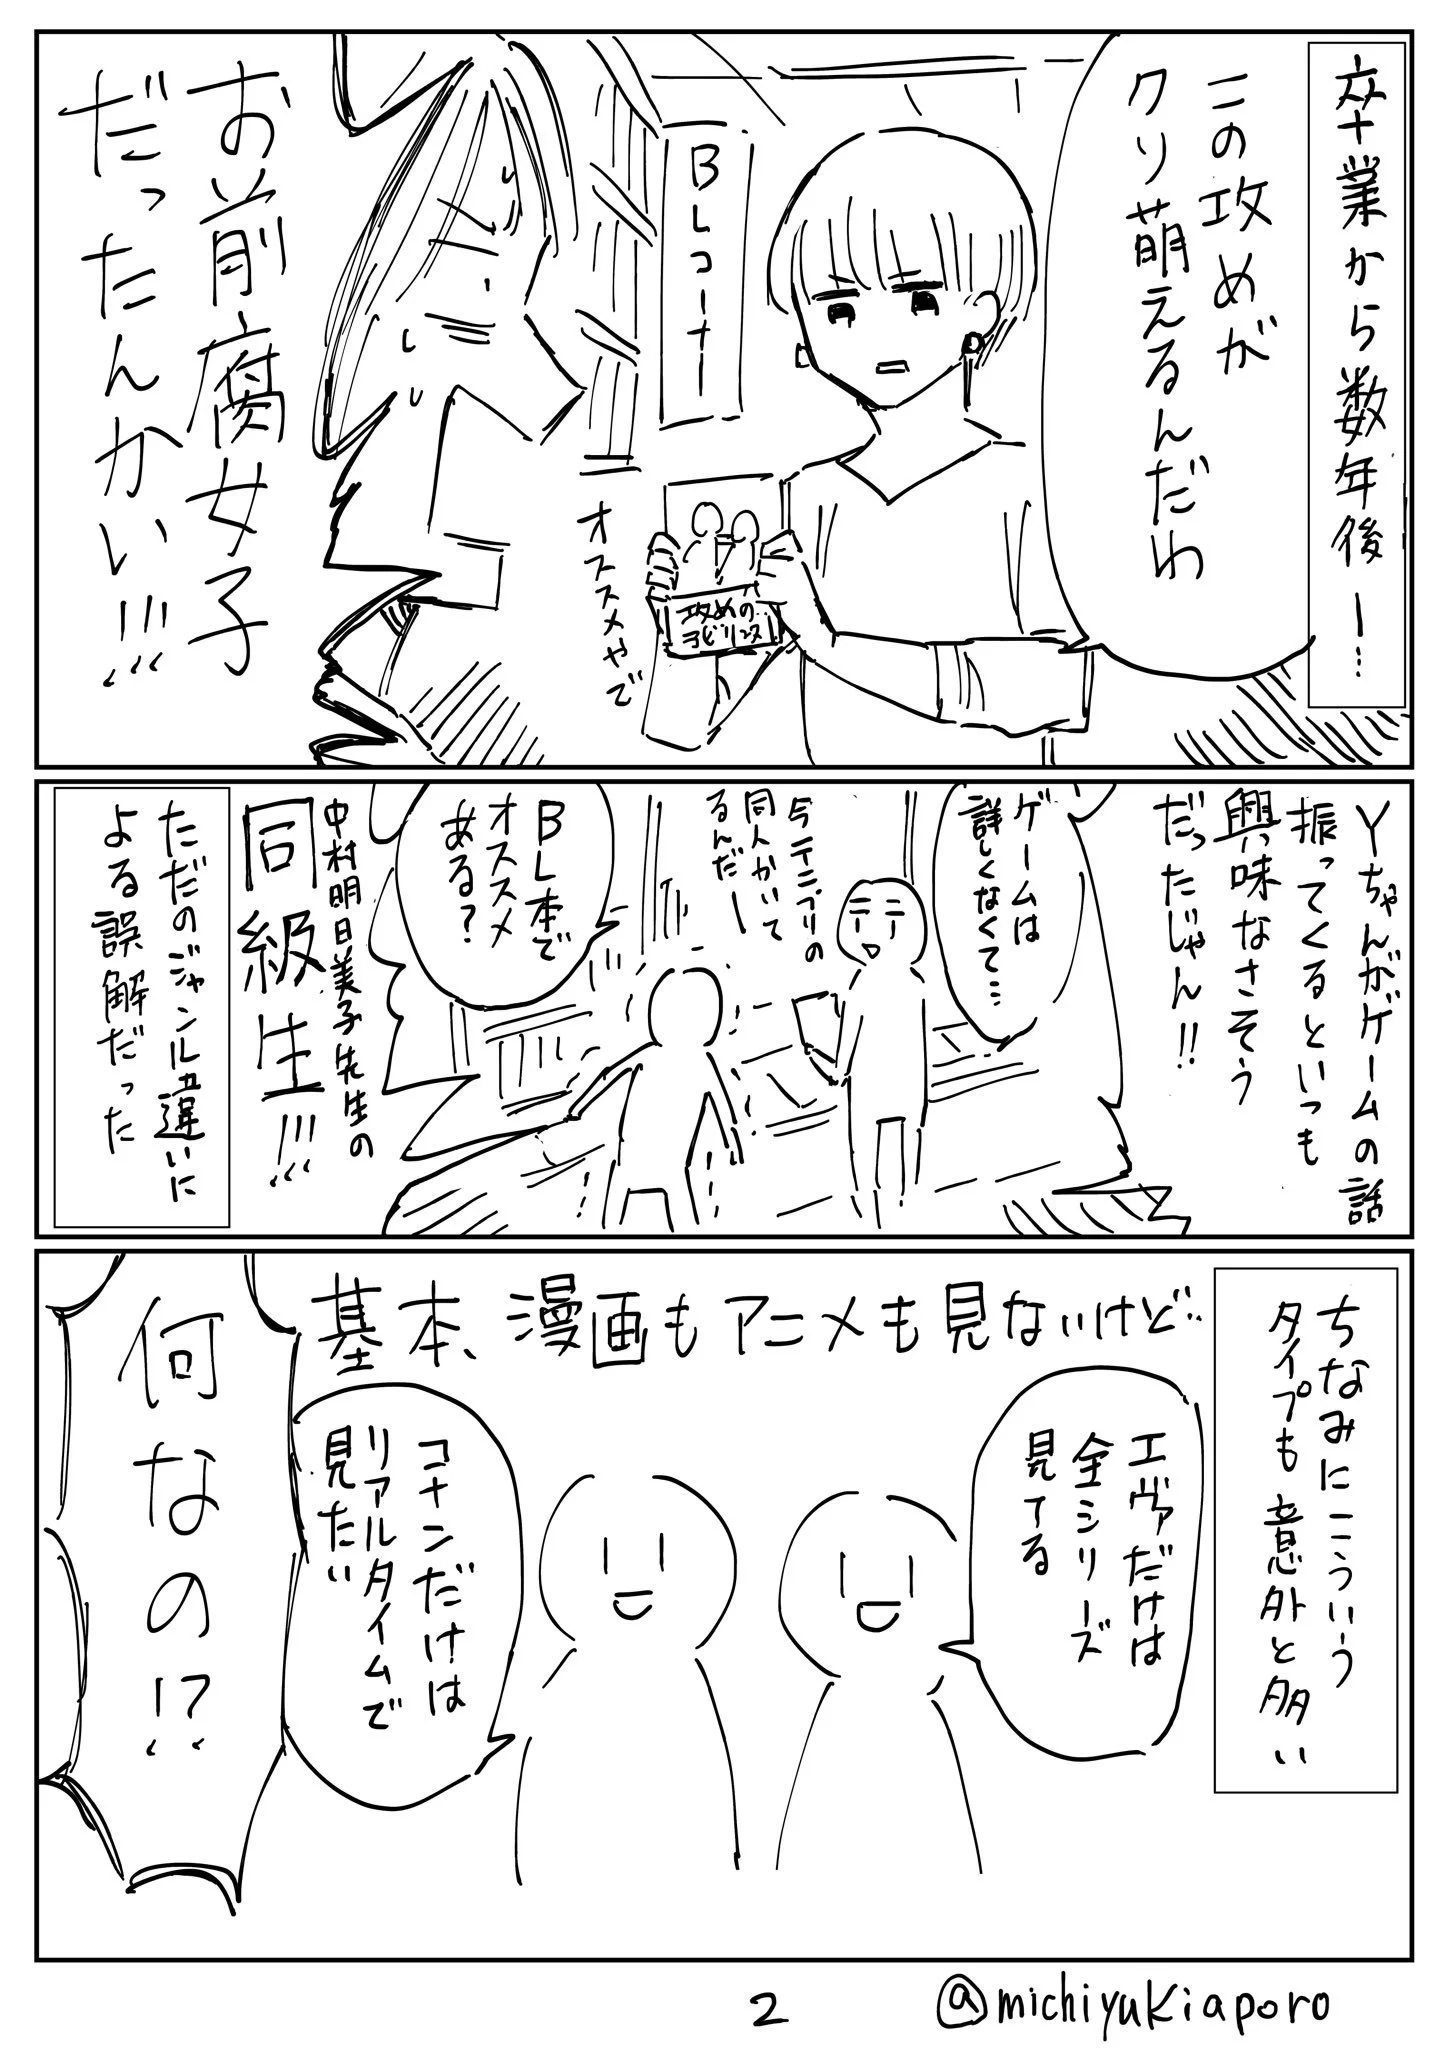 卒業から数年後ー…
この攻めが
クソ萌えるんだわ
BLコーナー
攻めの
オススメやで
お前腐女子
だったんかい!!!
Yちゃんがゲームの話
振ってくるといっも
興味なさそう
だったじゃん!!
ゲームは
詳しくなくて…
今テニプリの
同人かいて
るんだー
BL本で
オススメ
ある?
中村明日美子先生の
同級生!!!
ただのジャンル違いに
よる誤解だった
ちなみにこういう
タイプも意外と多い
基本、漫画もアニメも見ないけど…
エヴァだけは
全シリーズ
見てる
コナンだけは
リアルタイムで
見たい
何なの!?
2
@michiyukiaporo